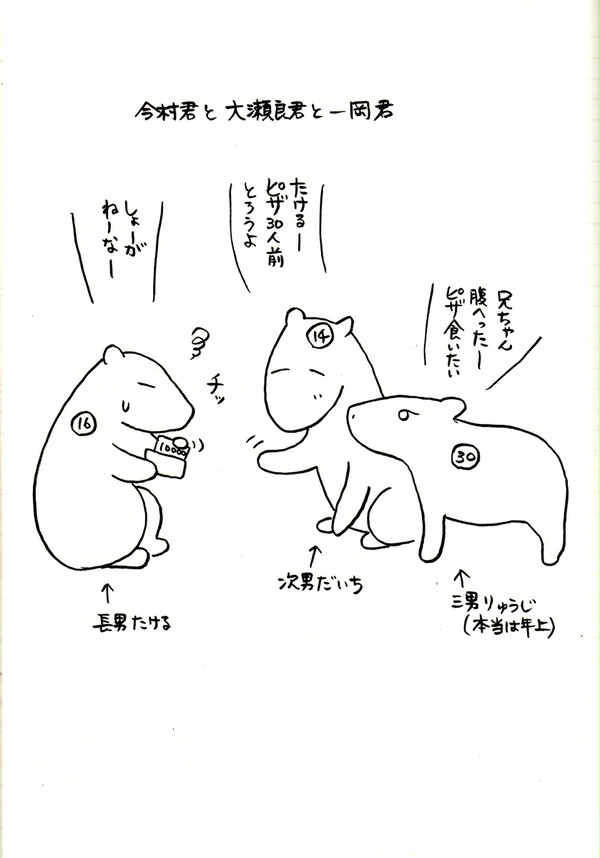 今村君と大瀬良君と一岡君
しょーが
ねーなー
たけるー
ピザ30人前
とろうよ
兄ちゃん
腹へったー
ピザ食いたい
チッ
16
10000
14
30
長男たける
次男だいち
三男りゅうじ
(本当は年上)